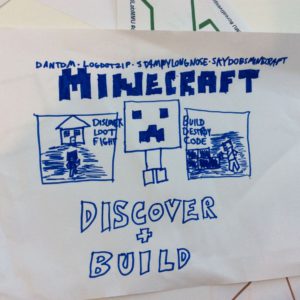 DANTDM · LOGDOTZIP · STAMPYLONGNOSE · SKYDOESMINECRAFT
MINECRAFT
DISCOVER
LOOT
FIGHT
BUILD
DESTROY
CODE
DISCOVER
+
BUILD